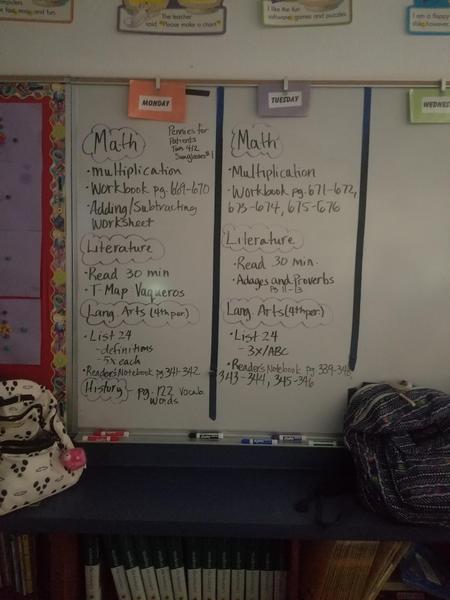 and fun.
The teacher
said "Please make a chart."
I like the fun
software, games and puzzles.
I am a floppy
MONDAY
Math
Pennies for
Patients
Tues 4/2
Sunglasses $1
• multiplication
• Workbook pg. 669-670
• Adding/Subtracting
Worksheet
Literature
• Read 30 min
• T-Map Vaqueros
Lang. Arts (4th per.)
• List 24
- definitions
- 5x each
• Reader's Notebook pg. 341-342
History - pg. 122 Vocab
Words
TUESDAY
Math
• Multiplication
• Workbook pg. 671-672,
673-674, 675-676
Literature
• Read 30 min.
• Adages and Proverbs
pg 11-13
Lang. Arts (4th per)
• List 24
- 3x/ABC
• Reader's Notebook pg 339-340
343-344, 345-346
WEDNES